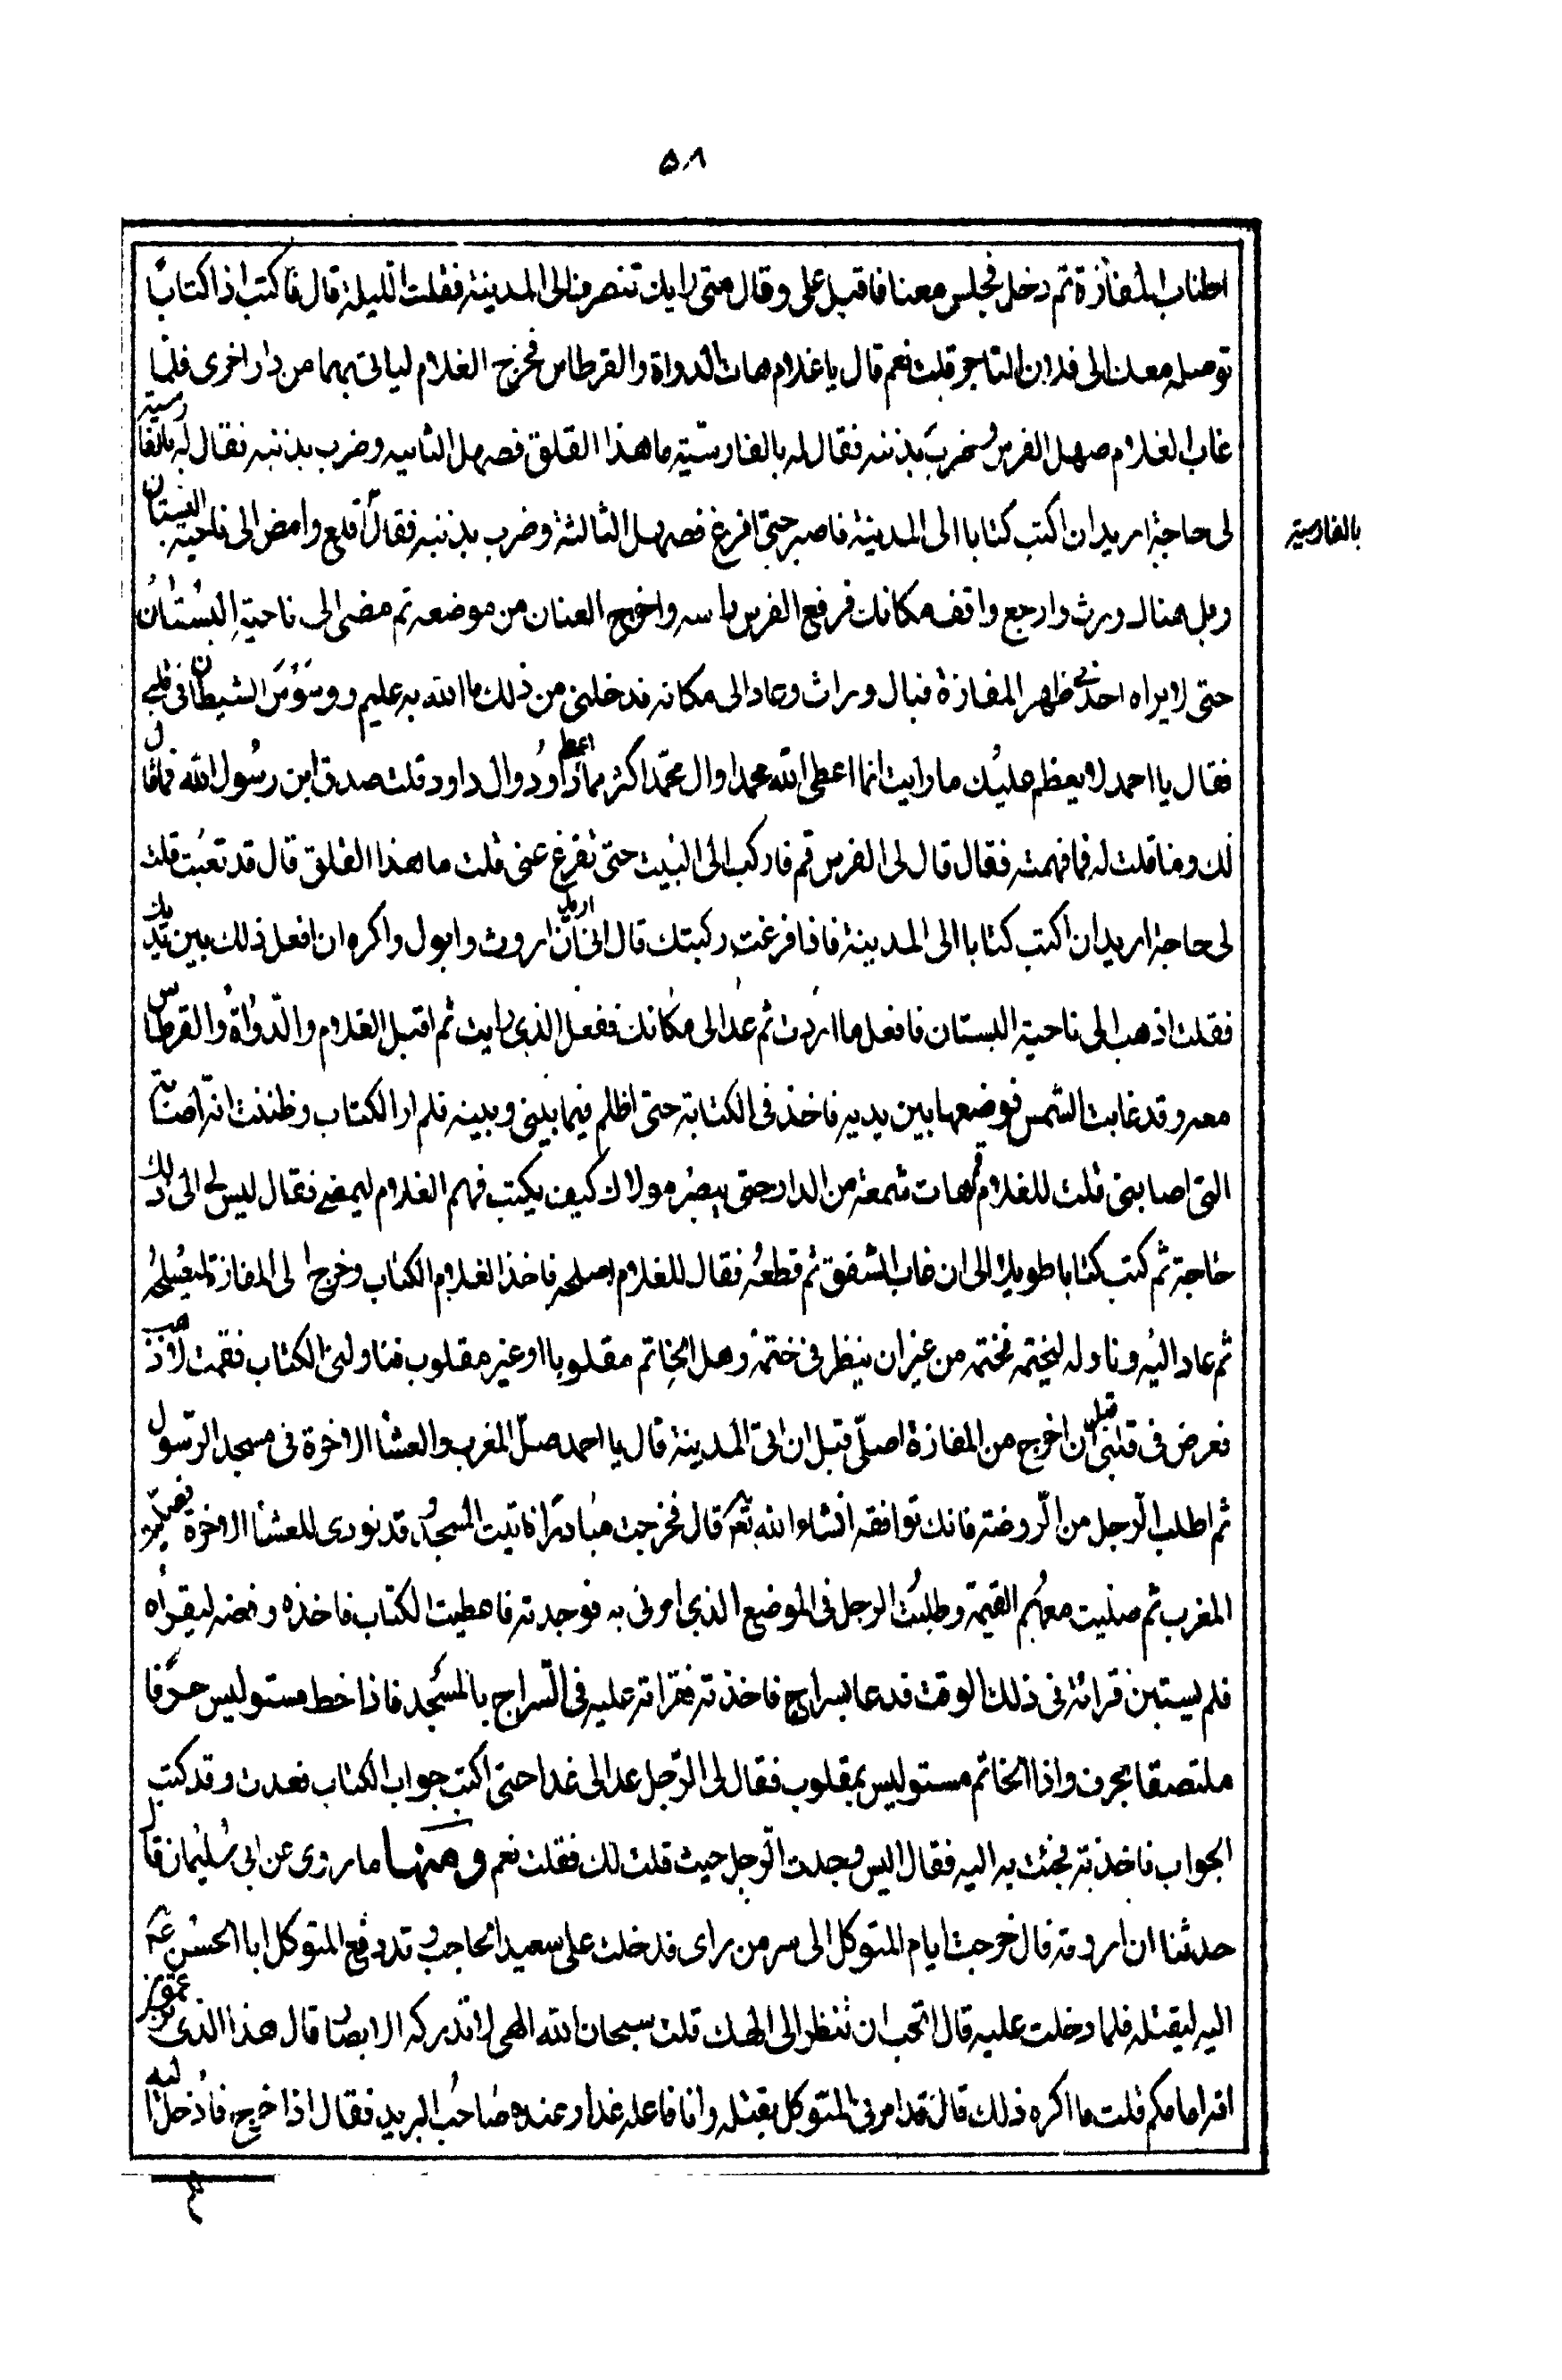 ٥٨
اطناب المفازة ثم دخل فجلس معنا فاقبل علی وقال متی رایك تنصرف الی المدینة فقلت اللیلة قال فاكتب اذا كتابا
توصله معك الی فلان التاجر قلت نعم قال یا غلام هات الدواة والقرطاس فخرج الغلام لیاتی بهما من دار اخری فلما
غاب الغلام صهل الفرس وضرب بذنبه فقال له بالفارسیة ما هذا القلق فصهل الثانیه وضرب بذنبه فقال له بالفارسیة
لی حاجة ارید ان اكتب كتابا الی المدینة فاصبر حتی افرغ فصهل الثالثة وضرب بذنبه فقال اقلع وامض الی ناحیة البستان
بالفارسیة
وبل هناك ورث وارجع واقف مكانك فرفع الفرس راسه واخرج العنان من موضعه ثم مضی الی ناحیة البستان
حتی لا یراه احد فی ظهر المفازة فبال وراث وعاد الی مكانه فدخلنی من ذلك ما الله به علیم ووسوس الشیطان فی قلبی
فقال یا احمد لا یعظم علیك ما رایت انما اعطی الله محمدا وال محمد اكثر مما اعطی داود وال داود قلت صدق ابن رسول الله فما قال
لك وما قلت له فما فهمته فقال قال لی الفرس قم فاركب الی البیت حتی تفرغ عنی قلت ما هذا القلق قال قد تعبت قلت
لی حاجة ارید ان اكتب كتابا الی المدینة فاذا فرغت ركبتك قال انی ارید ان اروث وابول واكره ان افعل ذلك بین یدیك
فقلت اذهب الی ناحیة البستان فافعل ما اردت ثم عد الی مكانك ففعل الذی رایت ثم اقبل الغلام والدواة والقرطاس
معه وقد غابت الشمس فوضعها بین یدیه فاخذ فی الكتابة حتی اظلم فیما بینی وبینه فلم ار الكتاب وظننت انه اصابته
التی اصابتنی قلت للغلام قم هات شمعة من الدار حتی یبصر مولاك كیف یكتب فهم الغلام لیمضی فقال لیس لی الی ذلك
حاجة ثم كتب كتابا طویلا الی ان غاب الشفق ثم قطعه فقال للغلام اصلحه فاخذ الغلام الكتاب وخرج الی المفازة لیصلحه
ثم عاد الیه وناوله لیختمه فختمه من غیر ان ینظر فی ختمه وهل الخاتم مقلوبا او غیر مقلوب فناولنی الكتاب فقمت لاذهب
فعرض فی قلبی قبل ان اخرج من المفازة اصلی قبل ان اتی المدینة قال یا احمد صل المغرب والعشا الاخرة فی مسجد الرسول
ثم اطلب الرجل من الروضة فانك توافقه انشاء الله تع قال فخرجت مبادرا فاتیت المسجد وقد نودی للعشا الاخرة فصلیت
المغرب ثم صلیت معهم القیمة وطلبت الرجل فی الموضع الذی امرنی به فوجدته فاعطیت الكتاب فاخذه وفضه لیقراه
فلم یستبن قرائة فی ذلك الوقت فدعا بسراج فاخذته فقراته علیه فی السراج بالمسجد فاذا خط مستو لیس حرفا
ملتصقا بحرف واذا الخاتم مستو لیس بمقلوب فقال لی الرجل عد الی غدا حتی اكتب جواب الكتاب فعدت وقد كتب
الجواب فاخذته فجئت به الیه فقال الیس وجدت الرجل حیث قلت لك فقلت نعم ومنها ما روی عن ابی سلیمان قال
حدثنا ان اروقه قال خرجت ایام المتوكل الی سر من رای فدخلت علی سعید الحاجب وقد دفع المتوكل ابا الحسن ع
الیه لیقتله فلما دخلت علیه قال اتحب ان تنظر الی الهك قلت سبحان الله الهی لا تدركه الابصار قال هذا الذی تزعمون
انه امامكم قلت ما اكره ذلك قال قد امرنی المتوكل بقتله وانا فاعله غدا وعنده صاحب البرید فقال اذا خرج فادخل الیه